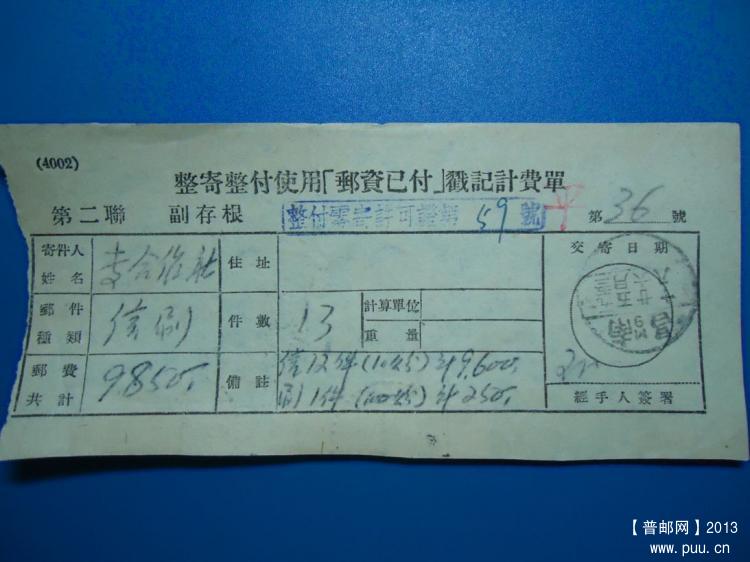 (4002)
整寄整付使用「郵資已付」戳記計費單
第二聯 副存根 整付零寄許可證第 59 號 平 第 36 號
寄件人姓名 合作社 住址 交寄日期
郵件種類 信刷 件數 13 計算單位
重量
郵費共計 9850 備註 信12件(10公分)計9600
刷1件(100公分)計250
南昌
經手人簽署
【普邮网】2013
www.puu.cn